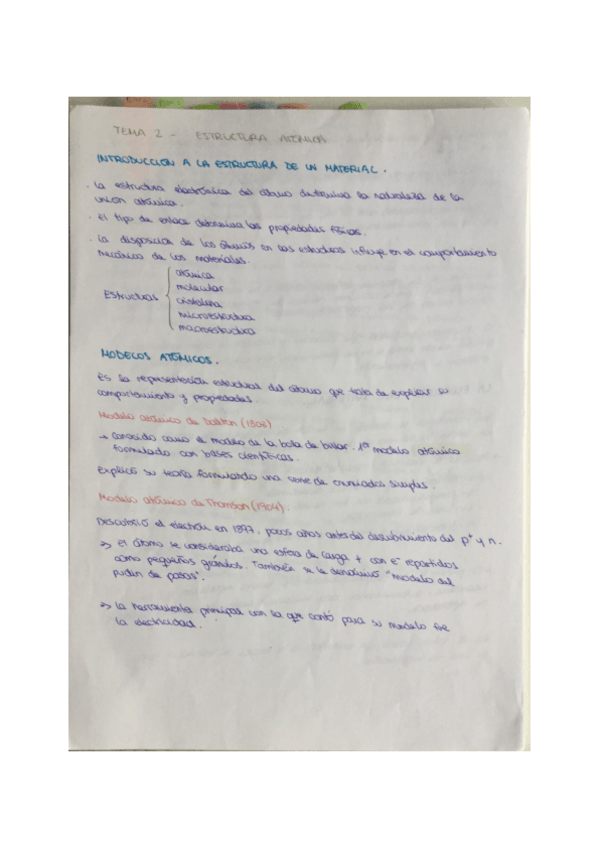 TEMA 2 - ESTRUCTURA ATÓMICA
INTRODUCCIÓN A LA ESTRUCTURA DE UN MATERIAL.
· La estructura electrónica del átomo determina la naturaleza de la
unión atómica.
· El tipo de enlace determina las propiedades físicas.
· La disposición de los átomos en las estructuras influye en el comportamiento
mecánico de los materiales.
atómica
molecular
Estructuras cristalina
microestructura
macroestructura
MODELOS ATÓMICOS.
Es la representación estructural del átomo que trata de explicar su
comportamiento y propiedades.
Modelo atómico de Dalton (1808)
→ Conocido como el modelo de la bola de billar. 1er modelo atómico
formulado con bases científicas.
Explicó su teoría formulando una serie de enunciados simples.
Modelo atómico de Thomson (1904).
Descubrió el electrón en 1897, pocos años antes del descubrimiento del p+ y n.
→ El átomo se consideraba una esfera de carga + con e- repartidos
como pequeños gránulos. También se le denominó "modelo del
pudin de pasas".
→ La herramienta principal con la que contó para su modelo fue
la electricidad.